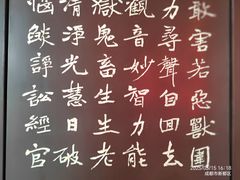 敢害若惡獸圍
力尋聲自回去
觀音妙智力能
獄鬼畜生生老
清淨光慧日破
惱燄諍訟經官
2025/05/15 16:18
成都市